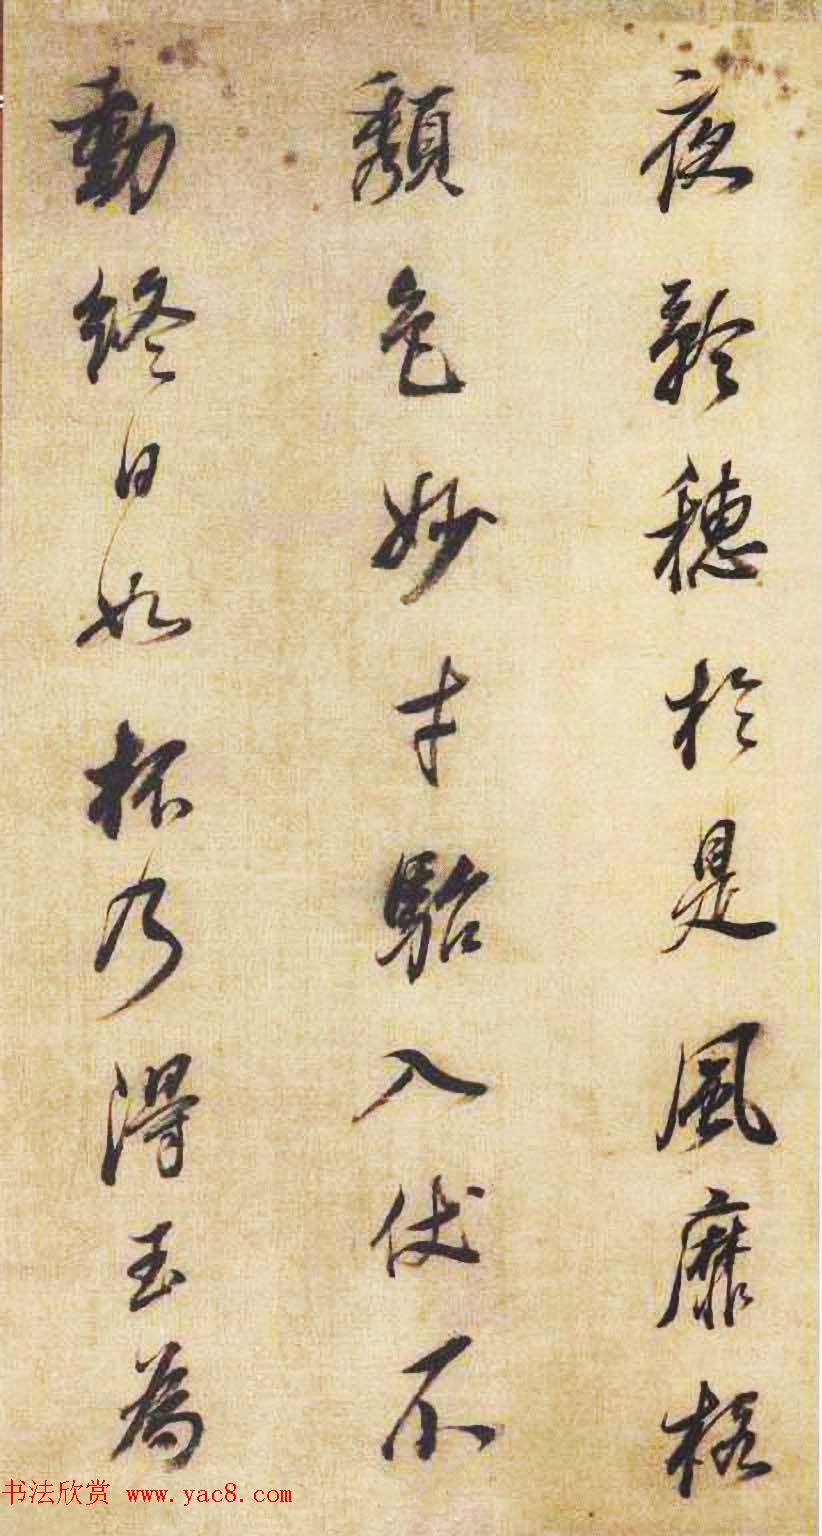 夜穗於是風靡格
頹色妙才駘入仗不
動終日如杯乃得玉為
书法欣赏 www.yac8.com